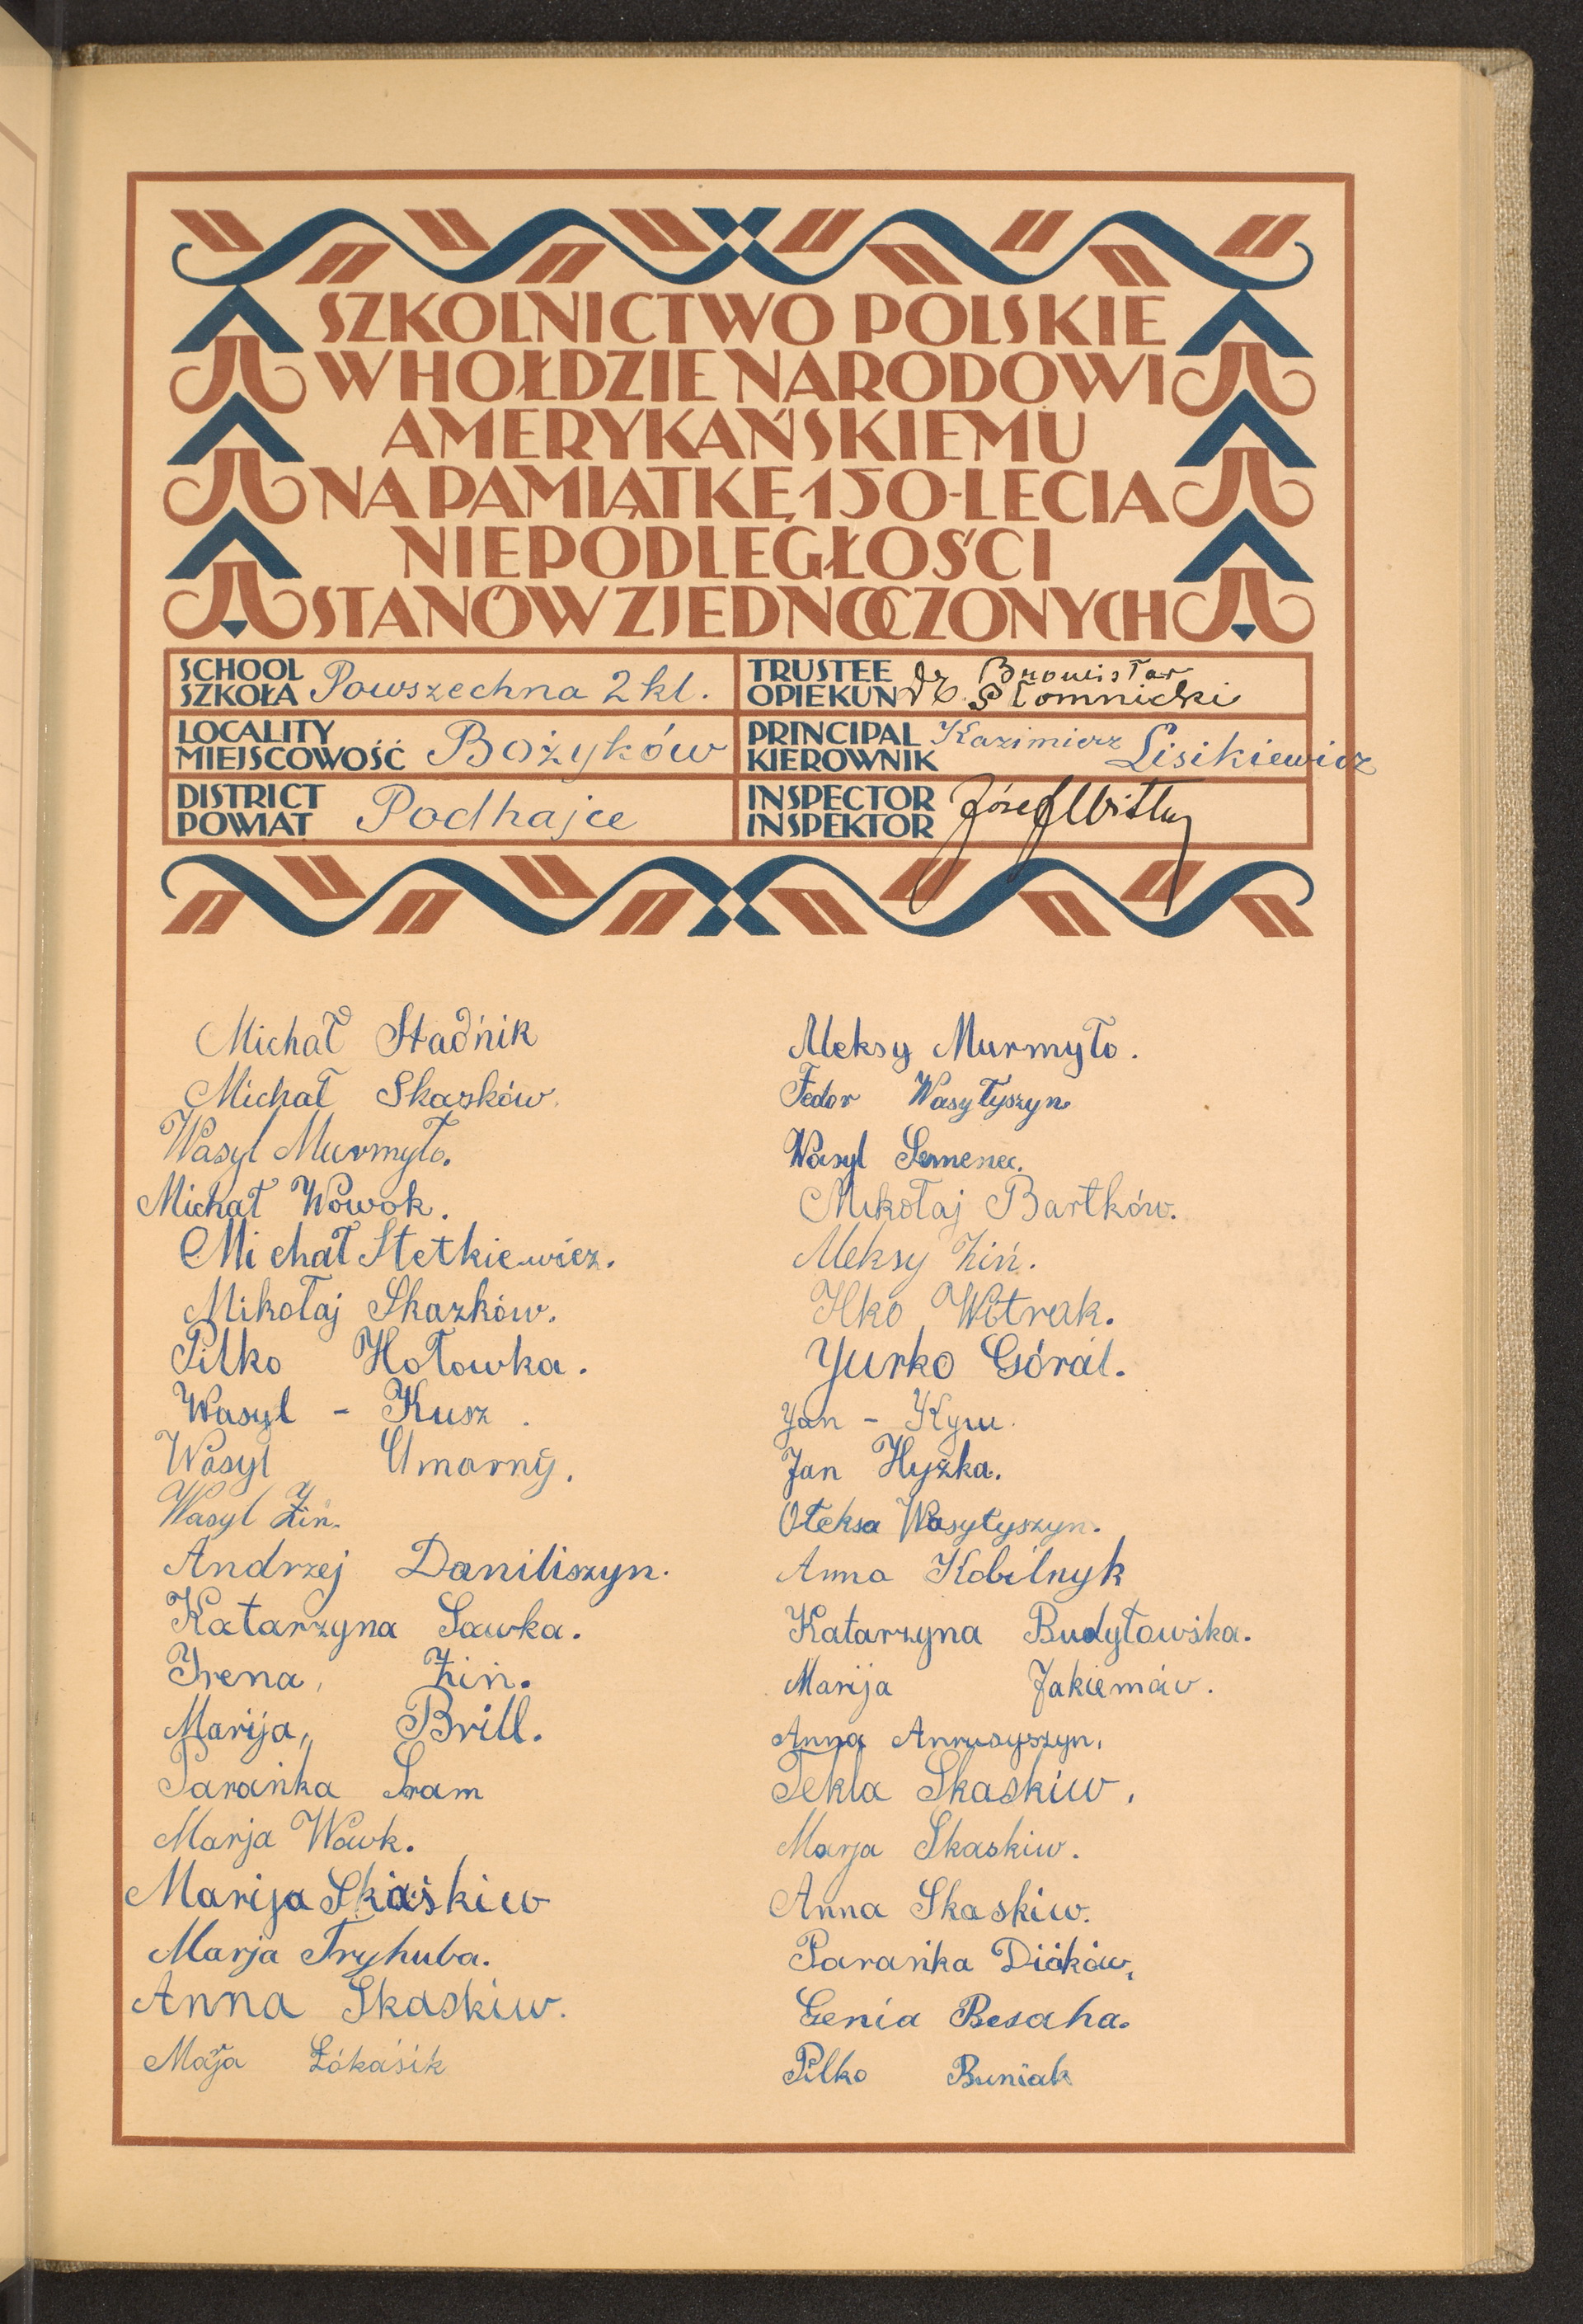 SZKOLNICTWO POLSKIE
W HOŁDZIE NARODOWI
AMERYKAŃSKIEMU
NA PAMIĄTKĘ 150-LECIA
NIEPODLEGŁOŚCI
STANÓW ZJEDNOCZONYCH
SCHOOL
SZKOŁA Powszechna 2 kl.
TRUSTEE
OPIEKUN dr. Bronisław Słomnicki
LOCALITY
MIEJSCOWOŚĆ Bożyków
PRINCIPAL
KIEROWNIK Kazimierz Lisikiewicz
DISTRICT
POWIAT Podhajce
INSPECTOR
INSPEKTOR Józef
Michał Stadnik
Michał Skasków.
Wasyl Murmyło.
Michał Wowok.
Michał Stetkiewicz.
Mikołaj Skazków.
Pilko Hołowka.
Wasyl - Kusz.
Wasyl Umarny.
Wasyl Zin.
Andrzej Daniliszyn.
Katarzyna Sawka.
Irena, Ziń.
Marija, Brill.
Parańka Sram
Marja Wowk.
Marija Skaśkiw
Marja Tryhuba.
Anna Skaskiw.
Marja Łókasik
Aleksy Murmyło.
Fedor Wasyłyszyn
Wasyl Semenec.
Mikołaj Bartków.
Aleksy Ziń.
Ilko Witrak.
Yurko Góral.
Jan - Kyw.
Jan Hyżka.
Ołeksa Wasyłyszyn.
Anna Kobilnyk
Katarzyna Budyłowśka.
Marija Jakiemów.
Anna Anrusyszyn.
Tekla Skaskiw.
Marja Skaskiw.
Anna Skaskiw.
Parańka Diáków,
Genia Besaha.
Pilko Buniak